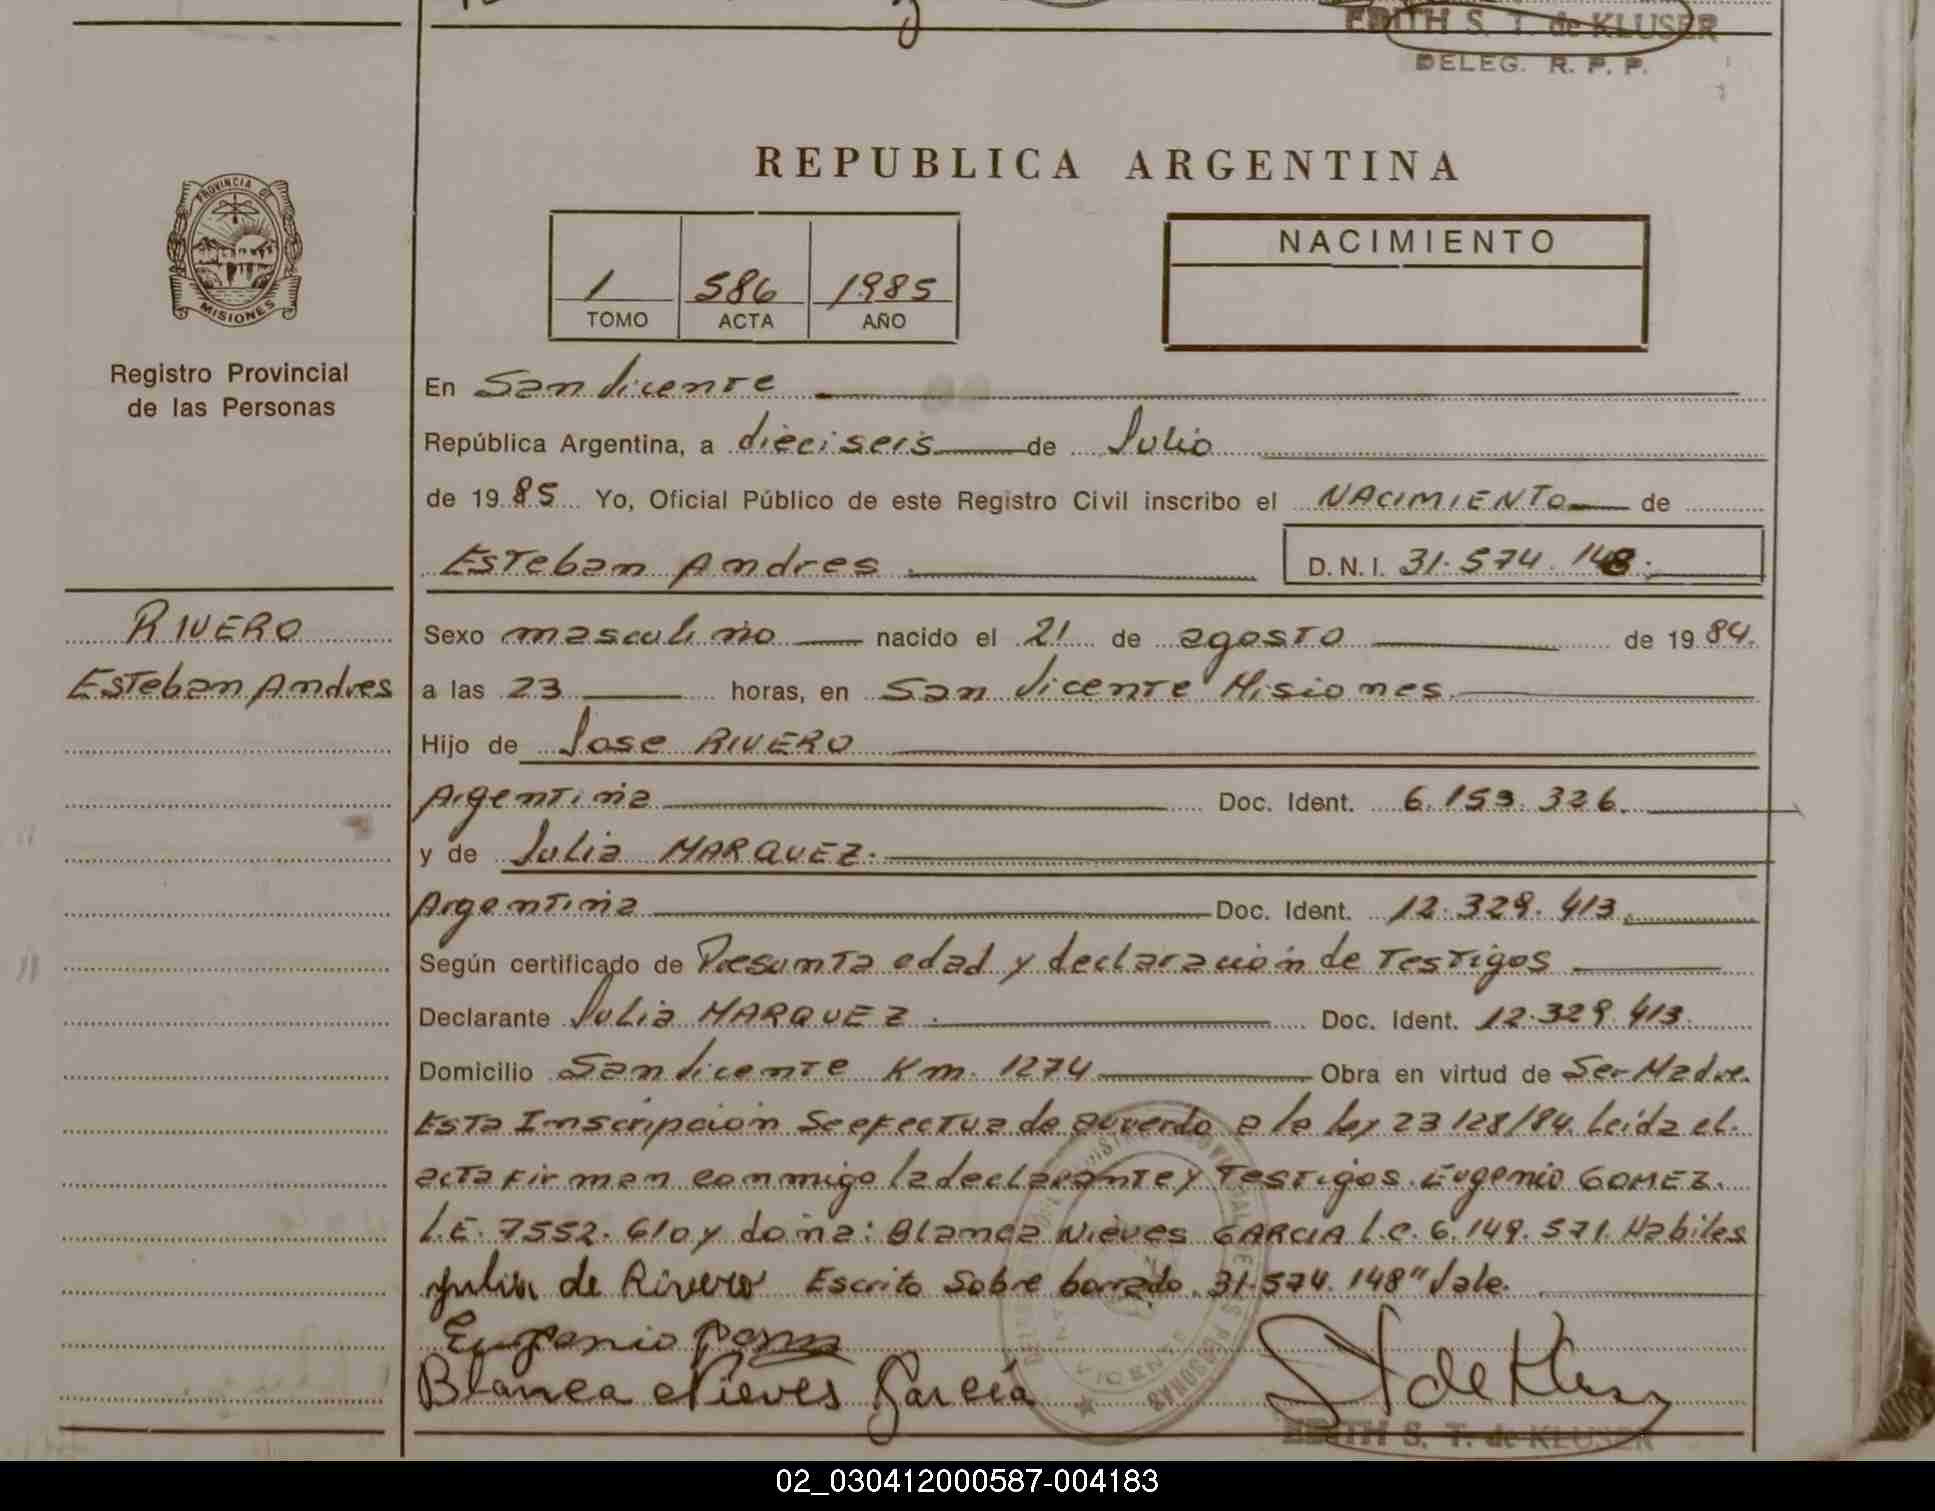 EDITH S. T. de KLUSER
DELEG. R. P. P.
REPUBLICA ARGENTINA
PROVINCIA DE
MISIONES
Registro Provincial
de las Personas
1 586 1985
TOMO ACTA AÑO
NACIMIENTO
En San Vicente
República Argentina, a dieciseis de Julio
de 1985 Yo, Oficial Público de este Registro Civil inscribo el NACIMIENTO de
Esteban Andres D.N.I. 31.574.148.
RIVERO
Esteban Andres
Sexo masculino nacido el 21 de agosto de 1984.
a las 23 horas, en San Vicente Misiones
Hijo de Jose RIVERO
Argentina Doc. Ident. 6.153.326.
y de Julia MARQUEZ.
Argentina Doc. Ident. 12.329.413.
Según certificado de Presunta edad y declaración de Testigos
Declarante Julia MARQUEZ. Doc. Ident. 12.329.413.
Domicilio San Vicente Km. 1274 Obra en virtud de Ser Madre.
Esta Inscripción Se efectua de acuerdo a la ley 23128/84. Leida el
acta firman conmigo la declarante y Testigos. Eugenio GOMEZ.
L.E. 7552.610 y doña: Blanca Nieves GARCIA L.C. 6.149.571. Habiles
Julia de Rivero Escrito Sobre borrado. 31.574.148" Vale.
Eugenio Gomez
Blanca Nieves García
EDITH S. T. de KLUSER
02_030412000587-004183